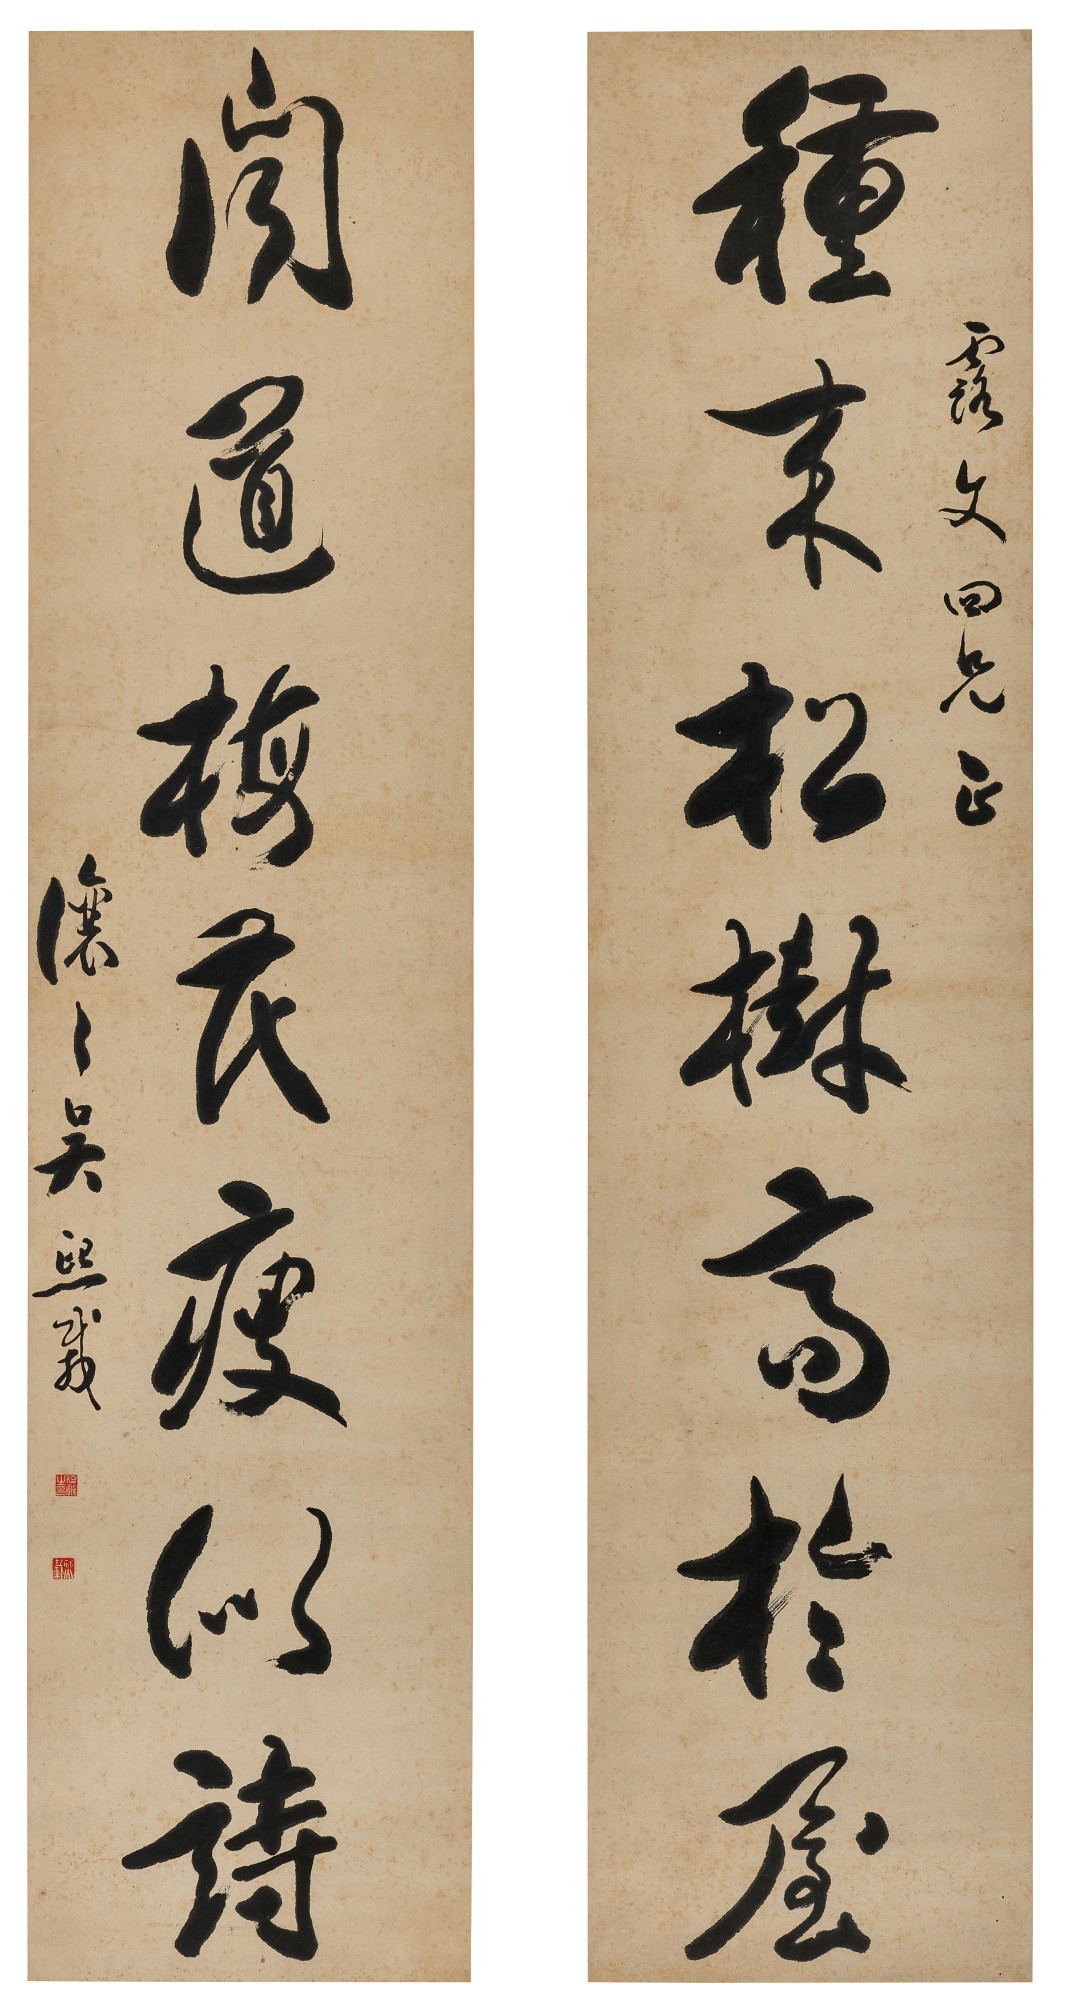 種來松樹高於屋
露文四兄正
聞道梅花瘦似詩
讓之吳熙載